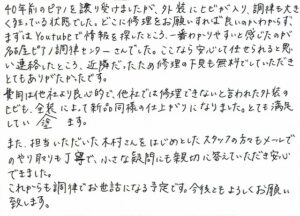 40年前のピアノを譲り受けましたが、外装にヒビが入り、調律も大き
く狂っている状態でした。どこに修理をお願いすれば良いのかわからず、
まずはYoutubeで情報を探したところ、一番わかりやすいと感じたのが
名古屋ピアノ調律センターさんでした。ここなら安心して任せられると思
い連絡したところ、近隣だったため修理の下見も無料でしていただき
とてもありがたかったです。
費用は他社より良心的で、他社では修理できないと言われた外装の
ヒビも、全装によって新品同様の仕上がりになりました。とても満足
してい 塗 ます。
また、担当いただいた木村さんをはじめとしたスタッフの方もメールで
のやり取りも丁寧で、小さな疑問にも親切に答えていただき安心
できました。
これからも調律でお世話になる予定です。今後ともよろしくお願い
致します。